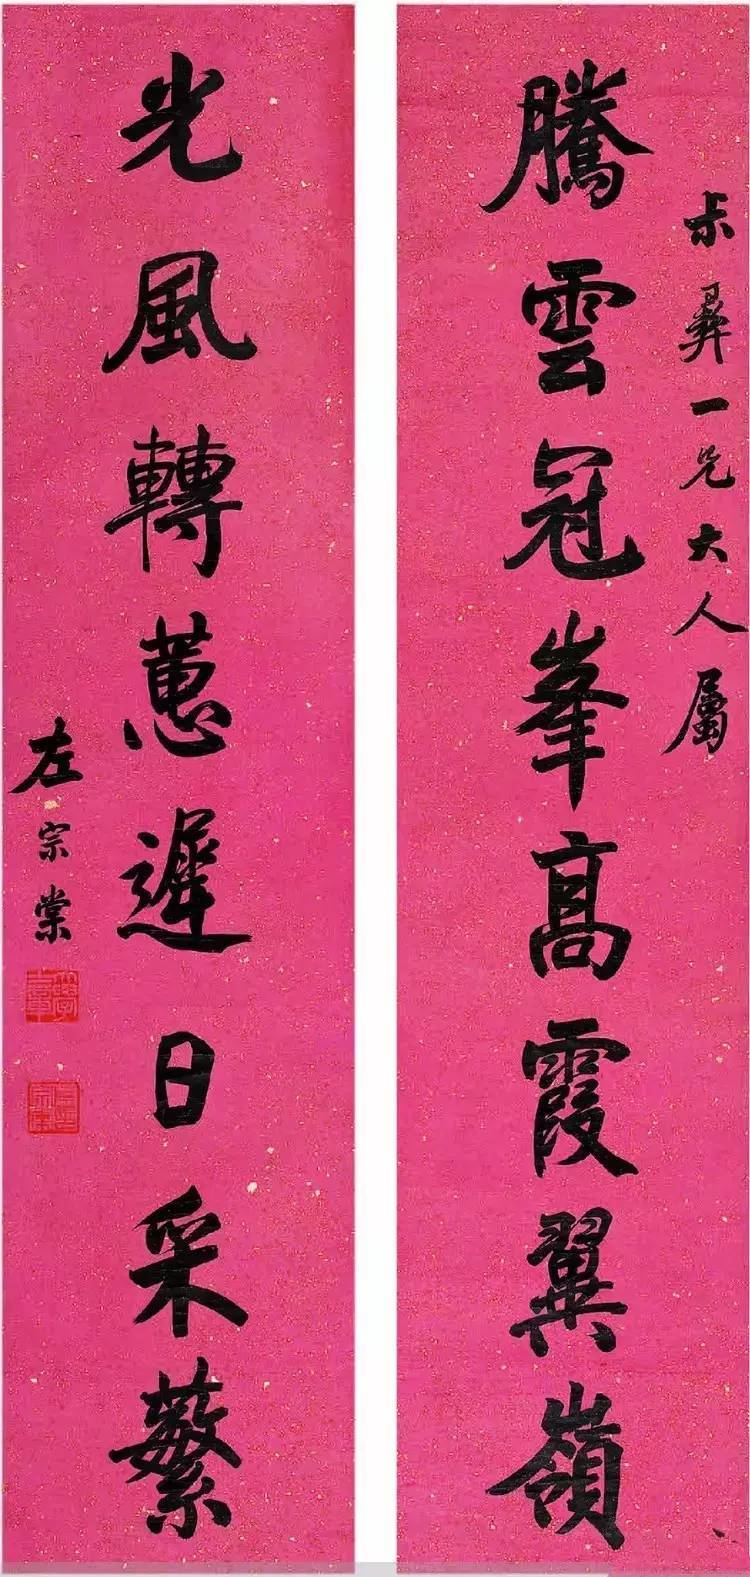 尗彝一兄大人屬
騰雲冠峯高霞翼嶺
光風轉蕙遲日采蘩
左宗棠